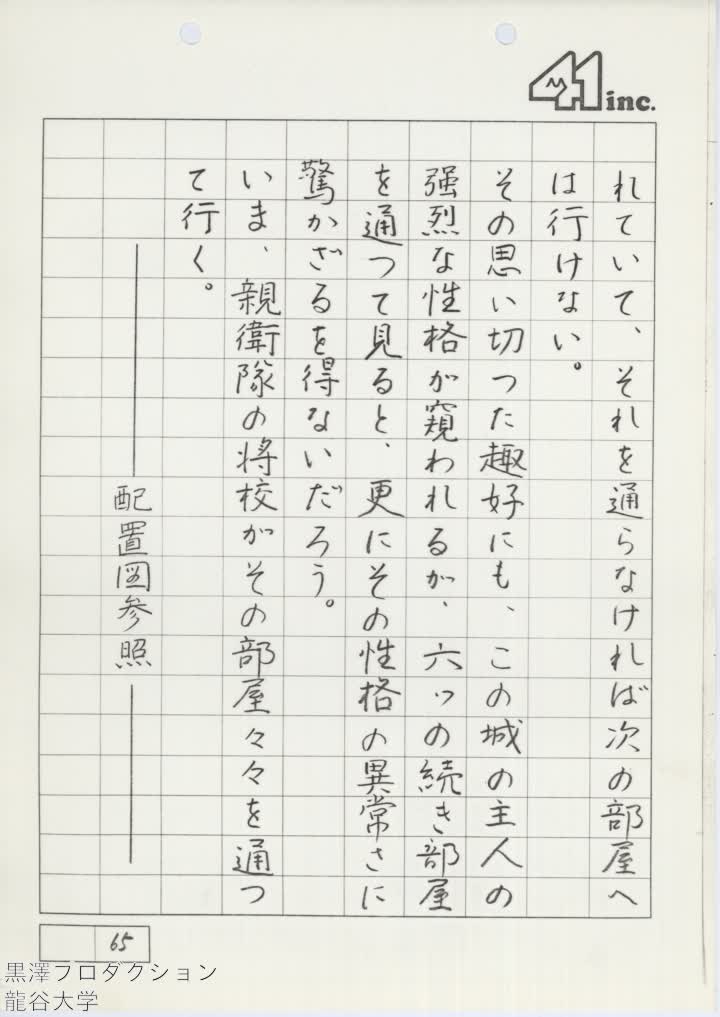 41 inc.
れていて、それを通らなければ次の部屋へ
は行けない。
その思い切つた趣好にも、この城の主人の
强烈な性格が窺われるが、六ッの続き部屋
を通つて見ると、更にその性格の異常さに
驚かざるを得ないだろう。
いま、親衛隊の将校がその部屋々々を通つ
て行く。
配置図参照
65
黒澤プロダクション
龍谷大学